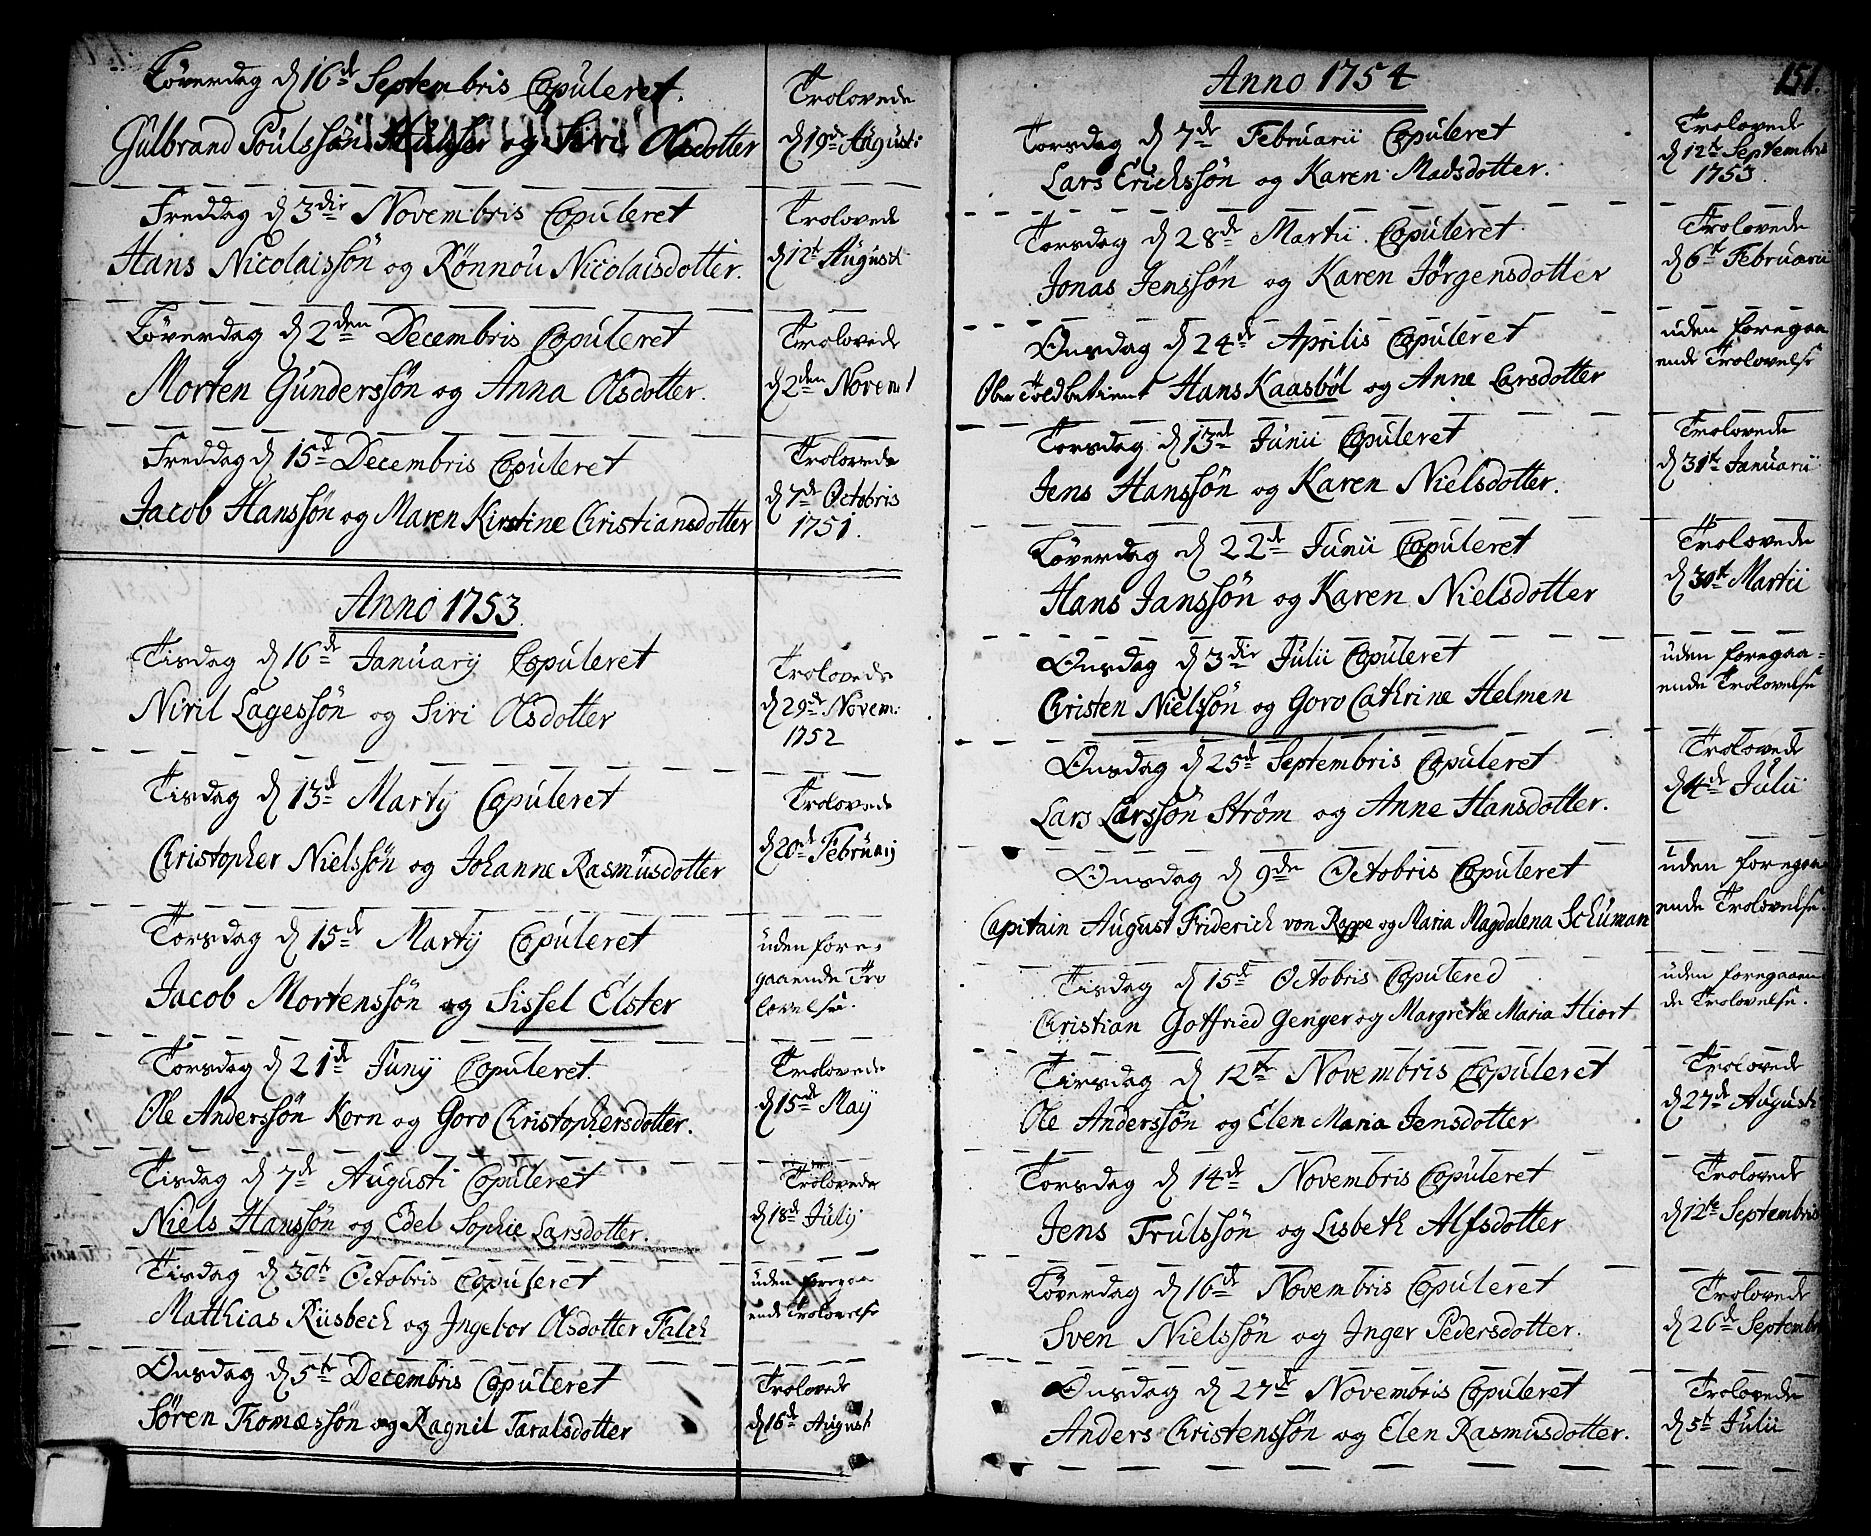 Løverdag d 16de Septembris Copuleret.
Gulbrand Poulssøn og Siri Olsdotter
Trolovede
d 19de Augusti
Freddag d 3die Novembris Copuleret
Hans Nicolaissøn og Rønnou Nicolaisdotter.
Trolovede
d 12t August
Løverdag d 2den Decembris Copuleret
Morten Gunderssøn og Anna Olsdotter.
Trolovede
d 2den Novem
Freddag d 15d Decembris Copuleret
Jacob Hanssøn og Maren Kirstine Christiansdotter
Trolovede
d 7de Octobris
1751.
Anno 1753.
Tisdag d 16de Januarij Copuleret
Niril Lagessøn og Siri Olsdotter
Trolovede
d 29de Novem:
1752
Tisdag d 13d Martij Copuleret
Christopher Nielssøn og Johanne Rasmusdotter
Trolovede
d 20de Februarij
Torsdag d 15de Martij Copuleret
Jacob Mortenssøn og Sissel Elster
uden fore-
gaaende Tro
lovelse.
Torsdag d 21de Junij Copuleret.
Ole Anderssøn Korn og Goro Christophersdotter.
Trolovede
d 15de Maij
Tisdag d 7de Augusti Copuleret
Niels Hanssøn og Edel Sophie Larsdotter.
Trolovede
d 18d Julij
Tisdag d 30te Octobris Copuleret
Matthias Rusbech og Ingebor Olsdotter Falch
uden foregaa
ende Trolovelse
Onsdag d 5te Decembris Copuleret
Søren Tomæssøn og Ragnil Taralsdotter
Trolovede
d 16de August
151.
Anno 1754
Torsdag d 7de Februarii Copuleret
Lars Erichssøn og Karen Madsdotter.
Trolovede
d 12te Septembris
1753.
Torsdag d 28de Martii Copuleret
Jonas Jenssøn og Karen Jørgensdotter
Trolovede
d 6te Februarii
Onsdag d 24de Aprilis Copuleret
Ober Toldbetient Hans Kaasbøl og Anne Larsdotter
uden foregaa
ende Trolovelse
Torsdag d 13de Junii Copuleret
Jens Hanssøn og Karen Nielsdotter.
Trolovede
d 31te Januarii
Løverdag d 22de Junii Copuleret
Hans Janssøn og Karen Nielsdotter
Trolovede
d 30te Martii
Onsdag d 3die Julii Copuleret
Christen Nielssøn og Goro Cathrine Helmen
uden foregaa=
ende Trolovelse
Onsdag d 25de Septembris Copuleret
Lars Larssøn Strøm og Anne Hansdotter.
Trolovede
d 4de Julii
Onsdag d 9de Octobris Copuleret
Capitain August Friderich von Rappe og Maria Magdalena Schuman
uden foregaa
ende Trolovelse.
Tisdag d 15de Octobris Copulered
Christian Gotfried Genger og Margrethe Maria Hiort
uden foregaaen
de Trolovelse.
Tirsdag d 12te Novembris Copuleret
Ole Anderssøn og Elen Maria Jensdotter
Trolovede
d 27de Augusti
Torsdag d 14de Novembris Copuleret
Jens Trulssøn og Lisbeth Alfsdotter
Trolovede
d 12te Septembris
Løverdag d 16de Novembris Copuleret
Sven Nielssøn og Inger Pedersdotter.
Trolovede
d 26de Septembr
Onsdag d 27de Novembris Copuleret
Anders Christenssøn og Elen Rasmusdotter.
Trolovede
d 5te Julii